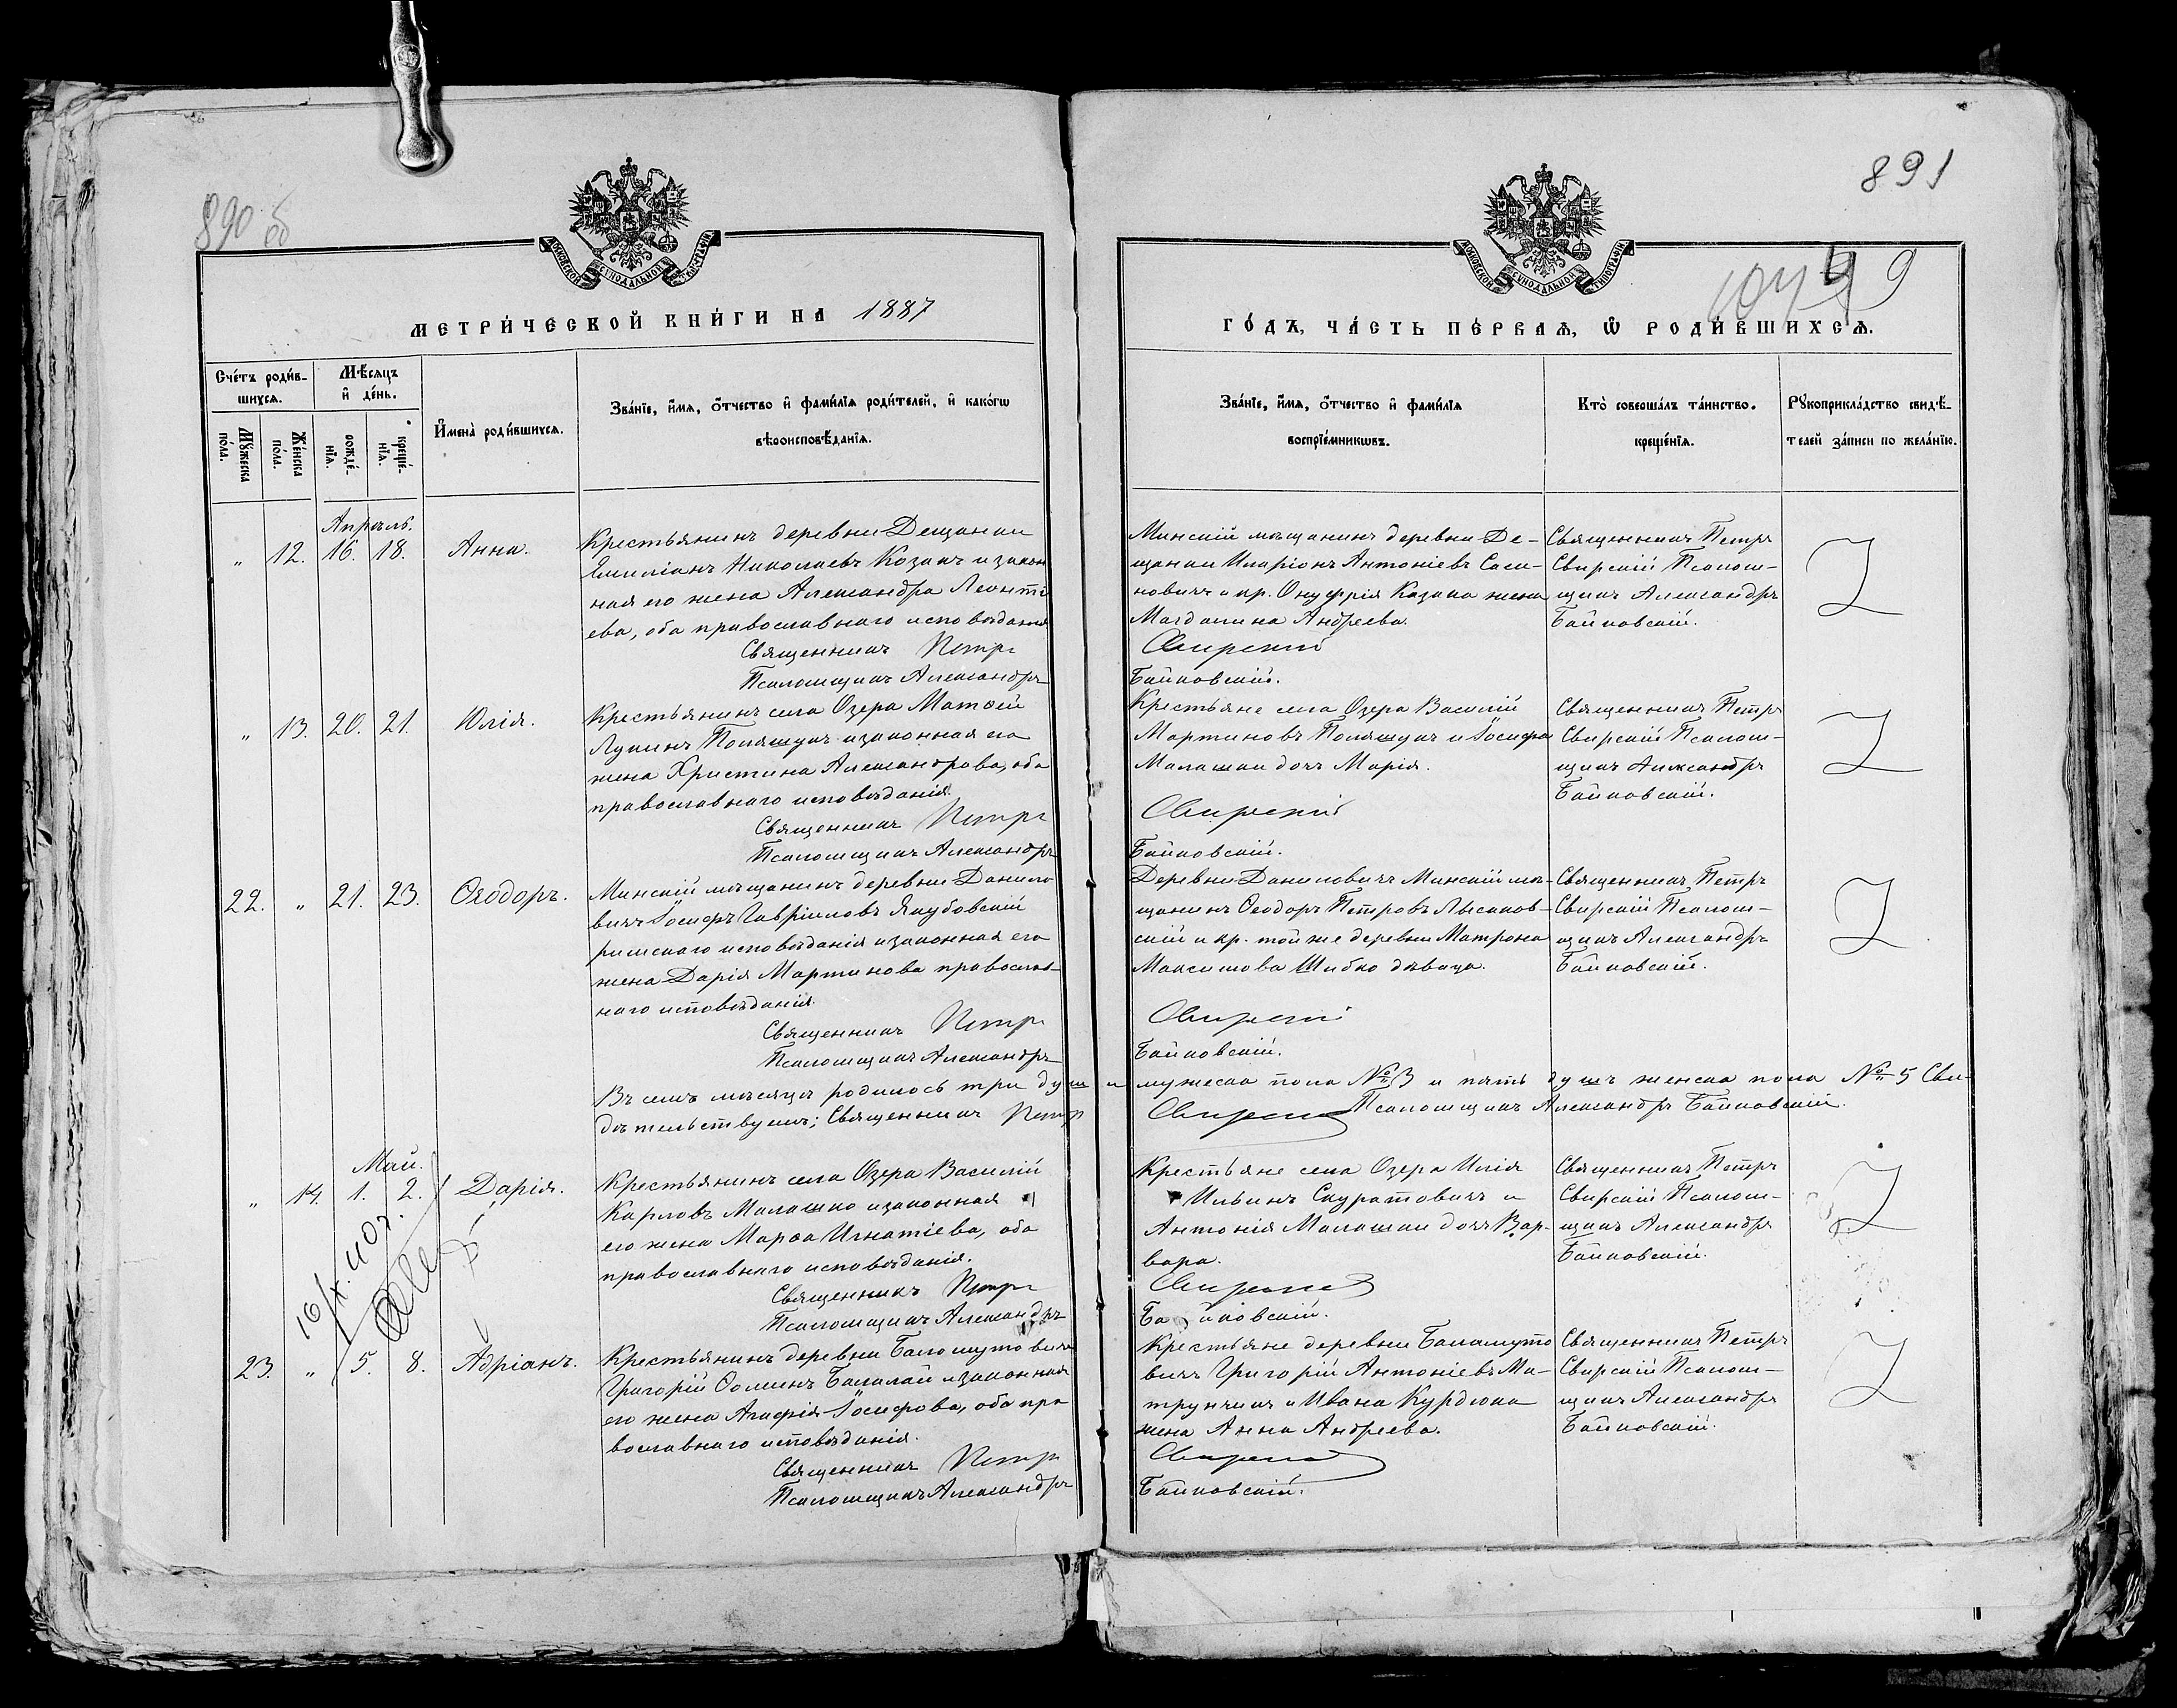 890 об
891
МОСКОВСКОЙ СѴНОДАЛЬНОЙ ТИПОГРАФІИ
МОСКОВСКОЙ СѴНОДАЛЬНОЙ ТИПОГРАФІИ
МЕТРИ́ЧЕСКОЙ КНИ́ГИ НА 1887
ГО́ДЪ, ЧА́СТЬ ПЕ́РВАѦ, Ѡ҆ РОДИ́ВШИХСѦ.
Сче́тъ роди́в-
шихсѧ.
Мѣ́сѧцъ
и҆ де́нь.
Мꙋ́жеска
по́ла.
Же́нска
по́ла.
рожде́-
нїѧ.
креще́-
нїѧ.
И҆мена̀ роди́вшихсѧ.
Зва́нїе, и҆́мѧ, ѻ҆́тчество и҆ фами́лїѧ роди́телей, и҆ како́гѡ
вѣроисповѣ́данїѧ.
Зва́нїе, и҆́мѧ, ѻ҆́тчество и҆ фами́лїѧ
воспрїе́мникѡвъ.
Кто̀ соверша́лъ та́инство
креще́нїѧ.
Рꙋкоприкла́дство свидѣ́-
телей за́писи по жела́нїю.
Апрѣль.
„ 12. 16. 18. Анна.
Крестьянинъ деревни Дещанки
Емиліанъ Николаевъ Козакъ и закон
ная его жена Александра Леонті
ева, оба православнаго исповѣданія
Священникъ Петръ
Псаломщикъ Александръ
Минскій мѣщанинъ деревни Де-
щанки Иларіонъ Антоніевъ Саси-
новичъ и кр. Онуфрія Казака жена
Магдалина Андреева.
Свирскій
Байковскій.
Священникъ Петръ
Свирскій Псалом-
щикъ Александръ
Байковскій.
„ 13. 20. 21. Юлія.
Крестьянинъ села Озера Матѳей
Лукинъ Полящукъ и законная его
жена Христина Александрова, оба
православнаго исповѣданія.
Священникъ Петръ
Псаломщикъ Александръ
Крестьяне села Озера Василій
Мартиновъ Полящукъ и Іосифа
Малашки дочь Марія.
Свирскій
Байковскій.
Священникъ Петръ
Свирскій Псалом-
щикъ Александръ
Байковскій.
22. „ 21. 23. Ѳеодоръ.
Минскій мѣщанинъ деревни Данило
вичъ Іосифъ Гавріиловъ Якубовскій
римскаго исповѣданія и законная его
жена Дарія Мартинова православ-
наго исповѣданія.
Священникъ Петръ
Псаломщикъ Александръ
Деревни Даниловичъ Минскій мѣ-
щанинъ Ѳеодоръ Петровъ Лысаков-
скій и кр. той же деревни Матрона
Максимова Шибко дѣвица.
Свирскій
Байковскій.
Священникъ Петръ
Свирскій Псалом-
щикъ Александръ
Байковскій.
Въ семъ мѣсяцѣ родилось три души мужеска пола № 3 и пять душъ женска пола № 5 Сви-
дѣтельствуемъ; Священникъ Петръ Свирскій Псаломщикъ Александръ Байковскій.
Май.
„ 14. 1. 2. Дарія.
Крестьянинъ села Озера Василій
Карповъ Малашко и законная
его жена Марѳа Игнатіева, оба
православнаго исповѣданія.
Священникъ Петръ
Псаломщикъ Александръ
Крестьяне села Озера Илія
Ильинъ Скуратовичъ и
Антонія Малашки дочь Вар-
вара.
Свирскій
Байковскій.
Священникъ Петръ
Свирскій Псалом-
щикъ Александръ
Байковскій.
23. „ 5. 8. Адріанъ.
Крестьянинъ деревни Баламутовичъ
Григорій Ѳоминъ Бакалай и законная
его жена Агафія Іосифова, оба пра
вославнаго исповѣданія.
Священникъ Петръ
Псаломщикъ Александръ
Крестьяне деревни Баламуто
вичъ Григорій Антоніевъ Ма-
трунчикъ и Ивана Курдюка
жена Анна Андреева.
Свирскій
Байковскій.
Священникъ Петръ
Свирскій Псалом-
щикъ Александръ
Байковскій.